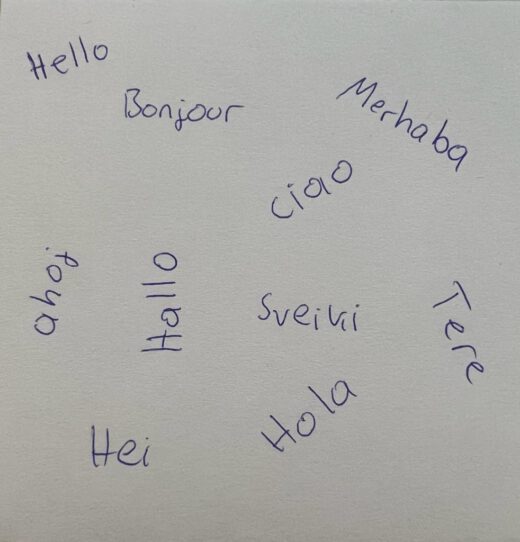 Hello
Bonjour
Merhaba
ciao
ahoj
Hallo
Sveiki
Tere
Hola
Hei